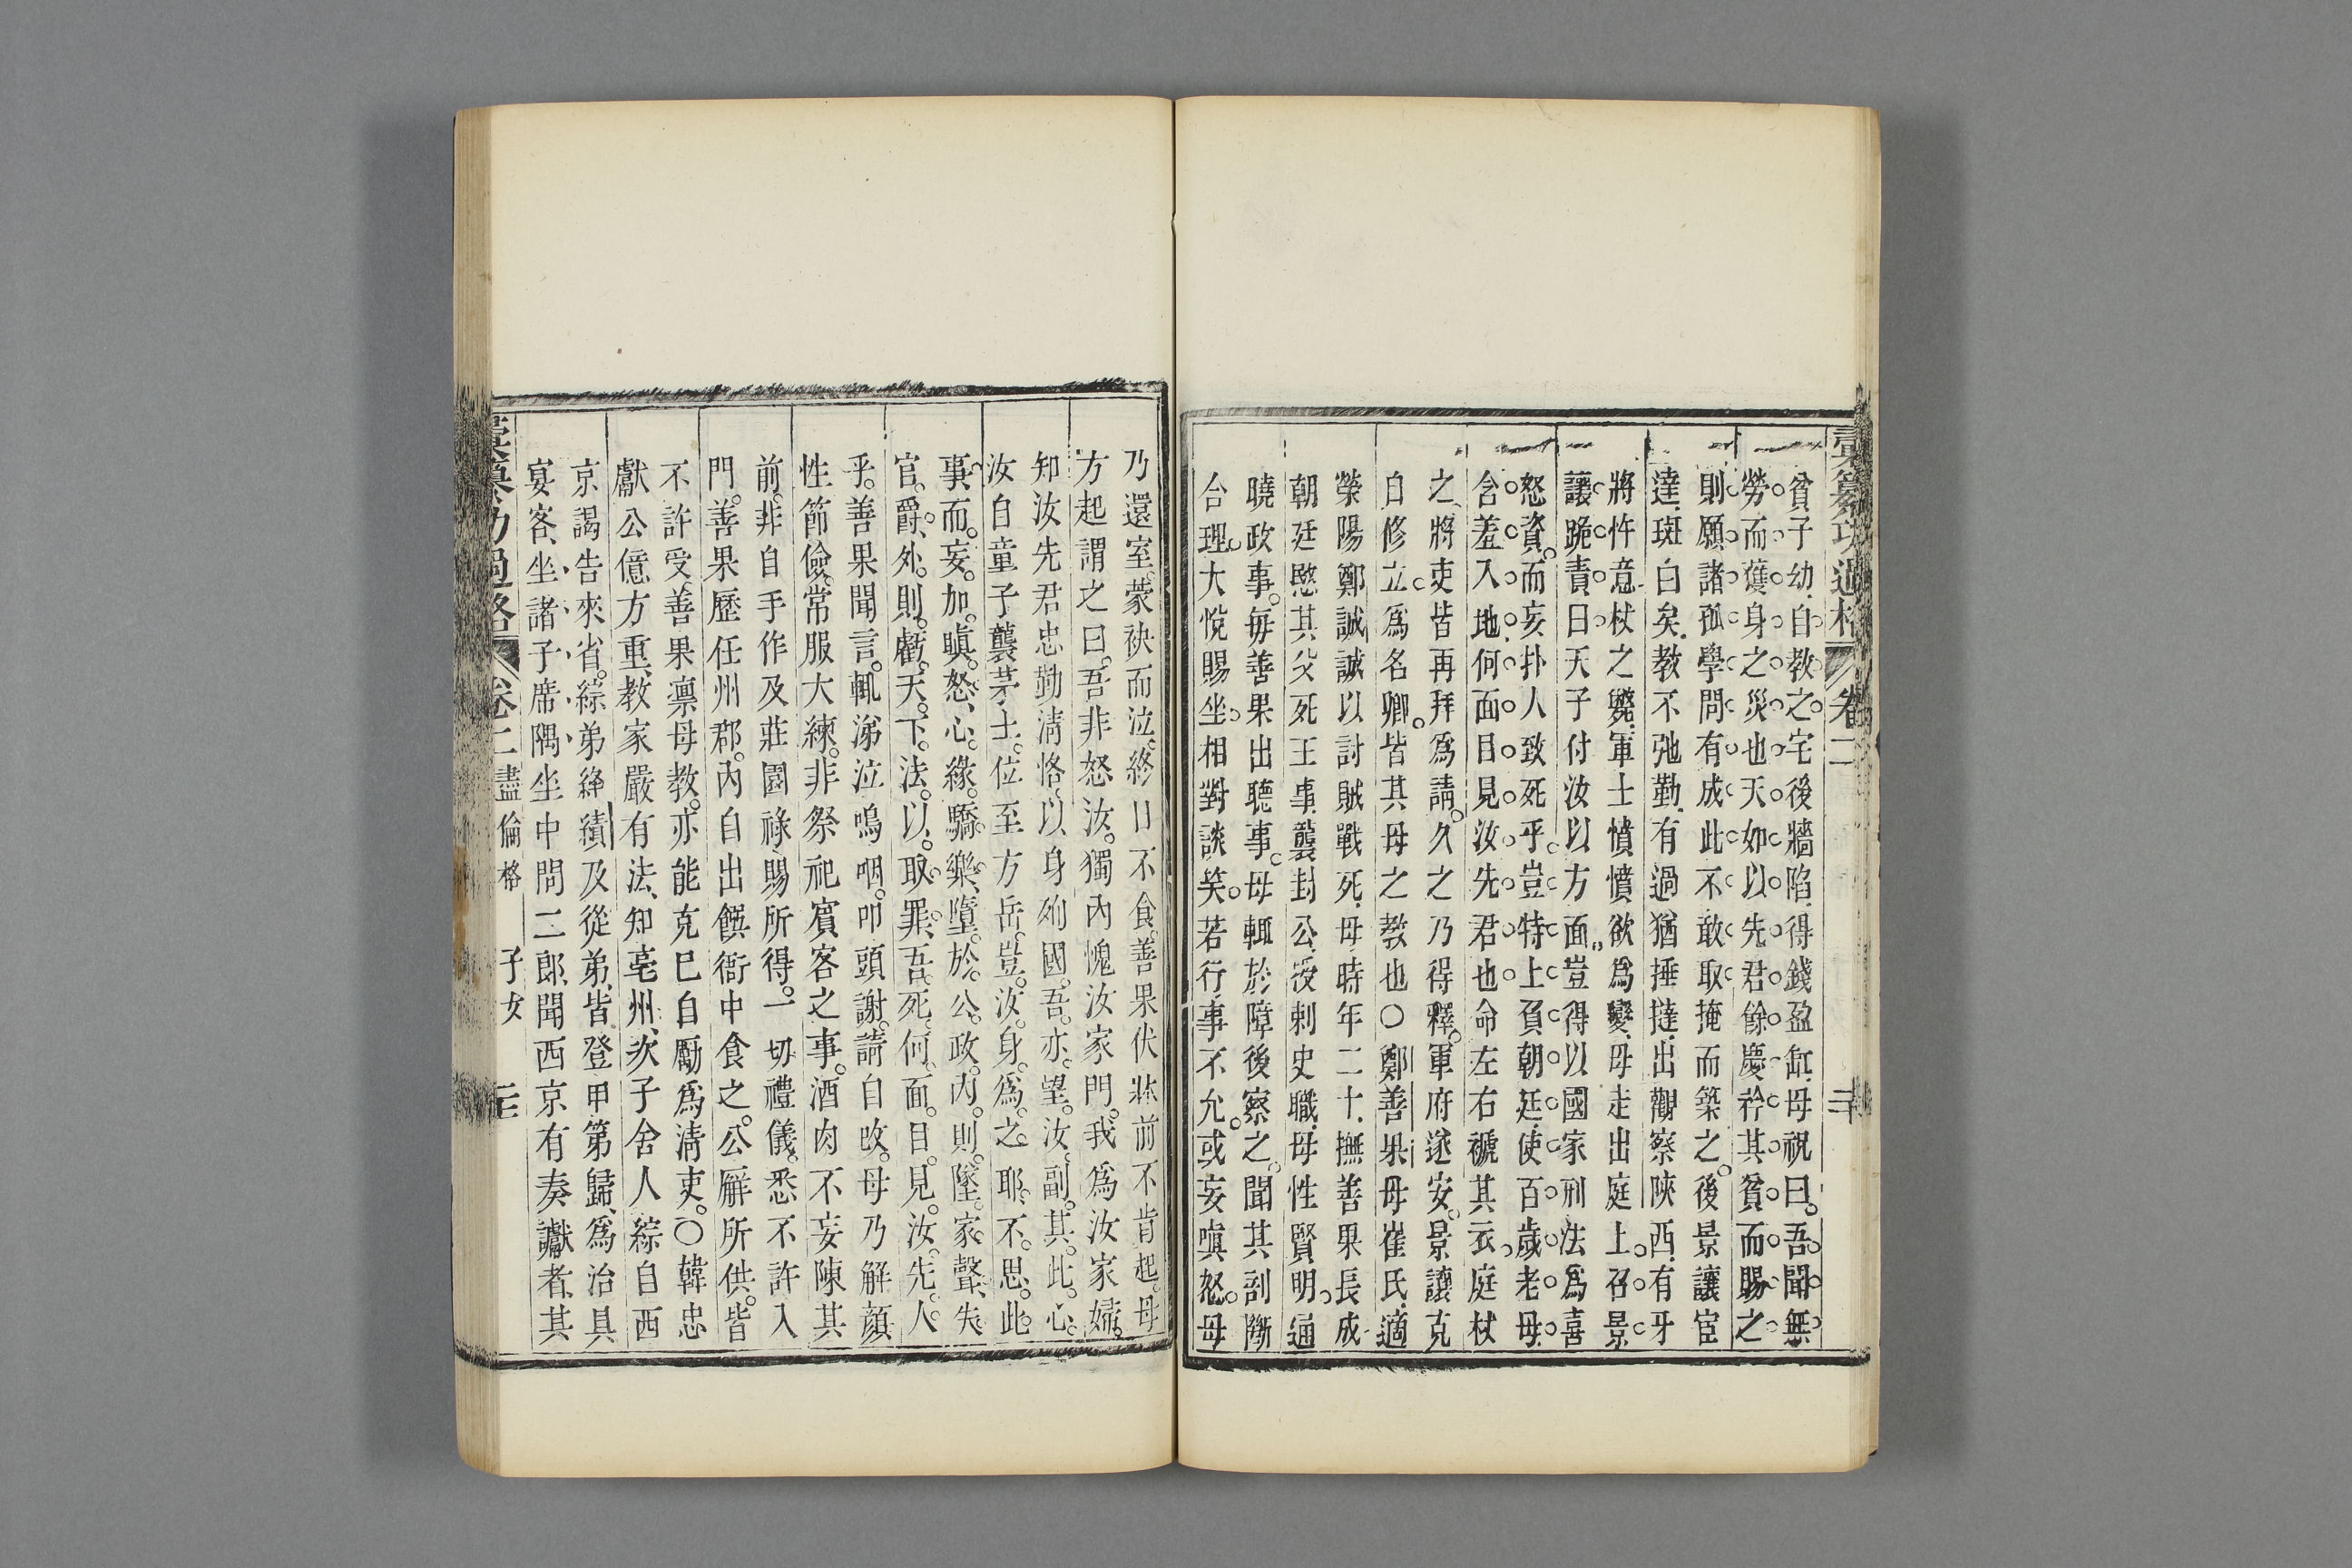 彙纂功過格 卷二
貧子幼自教之宅後牆陷得錢盈缸母祝曰吾聞無
勞而獲身之災也天如以先君餘慶矜其貧而賜之
則願諸孤學問有成此不敢取掩而築之後景讓宦
達斑白矣教不弛勤有過猶捶撻出觀察陝西有牙
將忤意杖之斃軍士憤憤欲為變母走出庭上召景
讓跪責曰天子付汝以方面豈得以國家刑法為喜
怒資而妄扑人致死乎豈特上負朝廷使百歲老母
含羞入地何面目見汝先君也命左右褫其衣庭杖
之將吏皆再拜為請久之乃得釋軍府遂安景讓克
自修立為名卿皆其母之教也○鄭善果母崔氏適
滎陽鄭誠誠以討賊戰死母時年二十撫善果長成
朝廷愍其父死王事襲封公授刺史職母性賢明通
曉政事每善果出聽事母輒於障後察之聞其剖斷
合理大悅賜坐相對談笑若行事不允或妄嗔怒母
乃還室蒙袂而泣終日不食善果伏牀前不肯起母
方起謂之曰吾非怒汝獨內愧汝家門我為汝家婦
知汝先君忠勤清恪以身殉國吾亦望汝副其此心
汝自童子襲茅土位至方岳豈汝身為之耶不思此
事而妄加瞋怒心緣驕樂墮於公政內則墜家聲失
官爵外則虧天下法以取罪吾死何面目見汝先人
乎善果聞言輒涕泣嗚咽叩頭謝請自改母乃解顏
性節儉常服大練非祭祀賓客之事酒肉不妄陳其
前非自手作及莊園祿賜所得一切禮儀悉不許入
門善果歷任州郡內自出饌衙中食之公廨所供皆
不許受善果稟母教亦能克己自勵為清吏○韓忠
獻公億方重教家嚴有法知亳州次子舍人綜自西
京謁告來省綜弟絳績及從弟皆登甲第歸為治具
宴客坐諸子席隅坐中問二郎聞西京有奏讞者其
彙纂功過格 卷二 盡倫格 子女